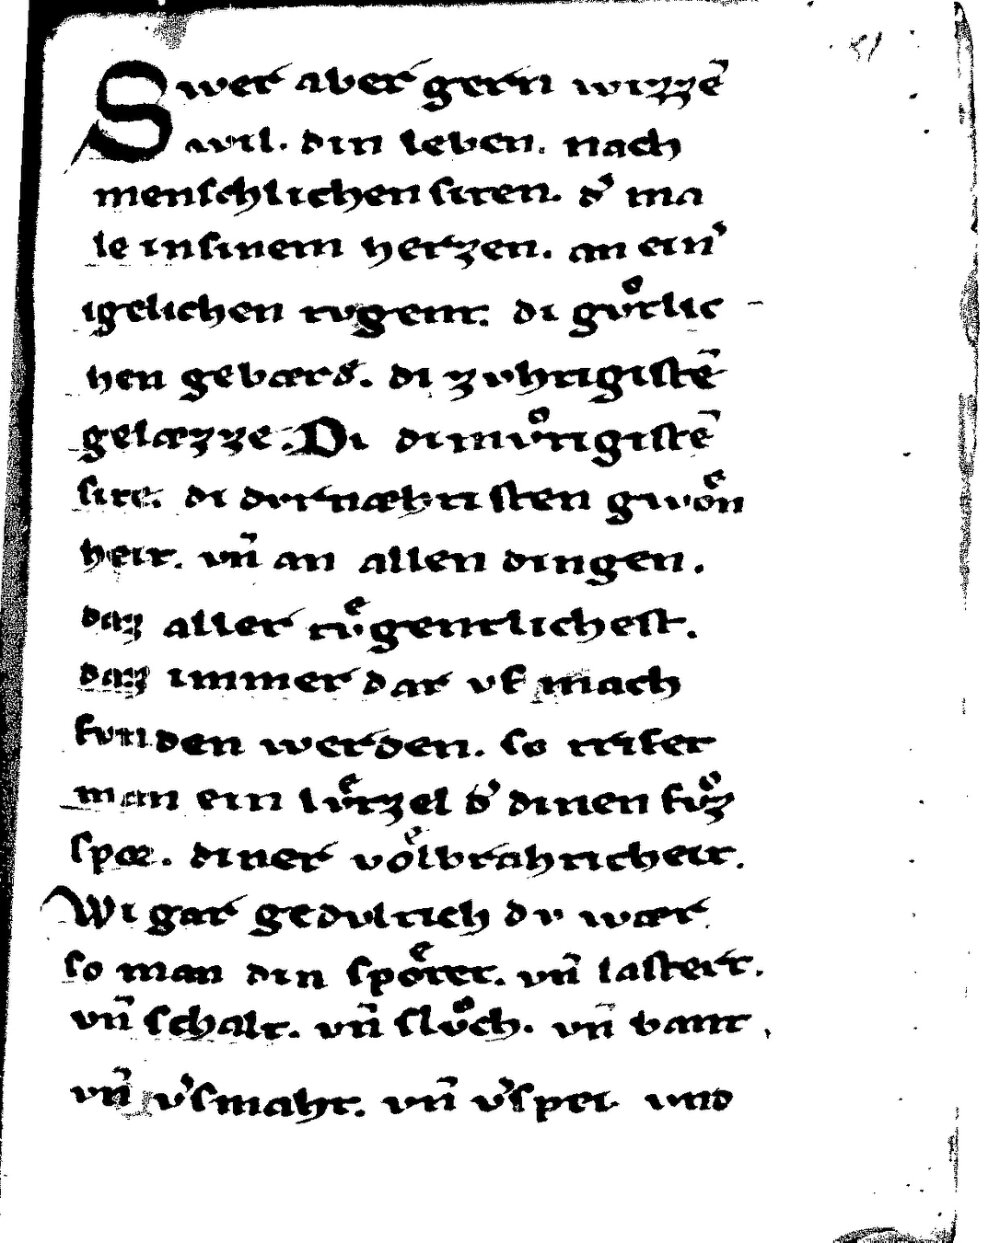 51
Swer aber gern wizzē
wil. din leben. nach
menschlichen siten. d' ma
le in sinem herzen. an ein'
igelichen tvgent. di gvͦtlic
hen gebærd. di zvhtigistē
gelæzze. Di dimvͦtigistē
site. di dvrnæhtisten gwoͤn
heit. vn̄ an allen dingen.
daz aller tvͤgentlichest.
daz immer dar vf mach
fvnden werden. so trifet
man ein lvͤtzel d' dinen fvͦz
spor. diner voͤlbrahticheit.
Wi gar gedvltich dv wær
so man din spoͤtet. vn̄ lastert.
vn̄ schalt. vn̄ slvͦch. vn̄ bant,
vn̄ v'smaht. vn̄ v'spei vnd